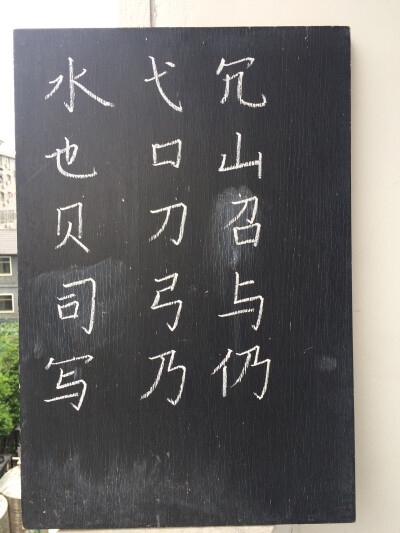 冗山召与仍
弋口刀弓乃
水也贝司写